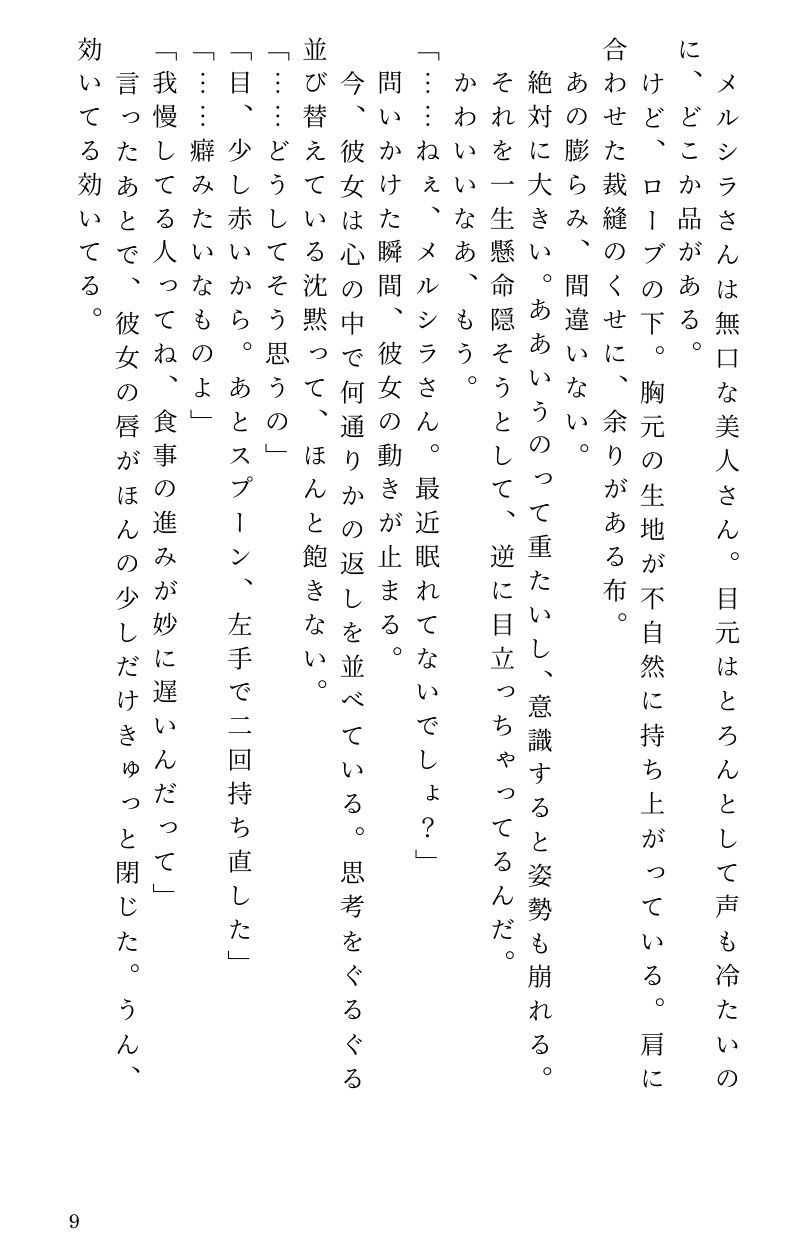 メルシラさんは無口な美人さん。目元はとろんとして声も冷たいの
に、どこか品がある。
　けど、ローブの下。胸元の生地が不自然に持ち上がっている。肩に
合わせた裁縫のくせに、余りがある布。
　あの膨らみ、間違いない。
　絶対に大きい。ああいうのって重たいし、意識すると姿勢も崩れる。
　それを一生懸命隠そうとして、逆に目立っちゃってるんだ。
　かわいいなあ、もう。
「……ねぇ、メルシラさん。最近眠れてないでしょ？」
　問いかけた瞬間、彼女の動きが止まる。
　今、彼女は心の中で何通りかの返しを並べている。思考をぐるぐる
並び替えている沈黙って、ほんと飽きない。
「……どうしてそう思うの」
「目、少し赤いから。あとスプーン、左手で二回持ち直した」
「……癖みたいなものよ」
「我慢してる人ってね、食事の進みが妙に遅いんだって」
　言ったあとで、彼女の唇がほんの少しだけきゅっと閉じた。うん、
効いてる効いてる。
9